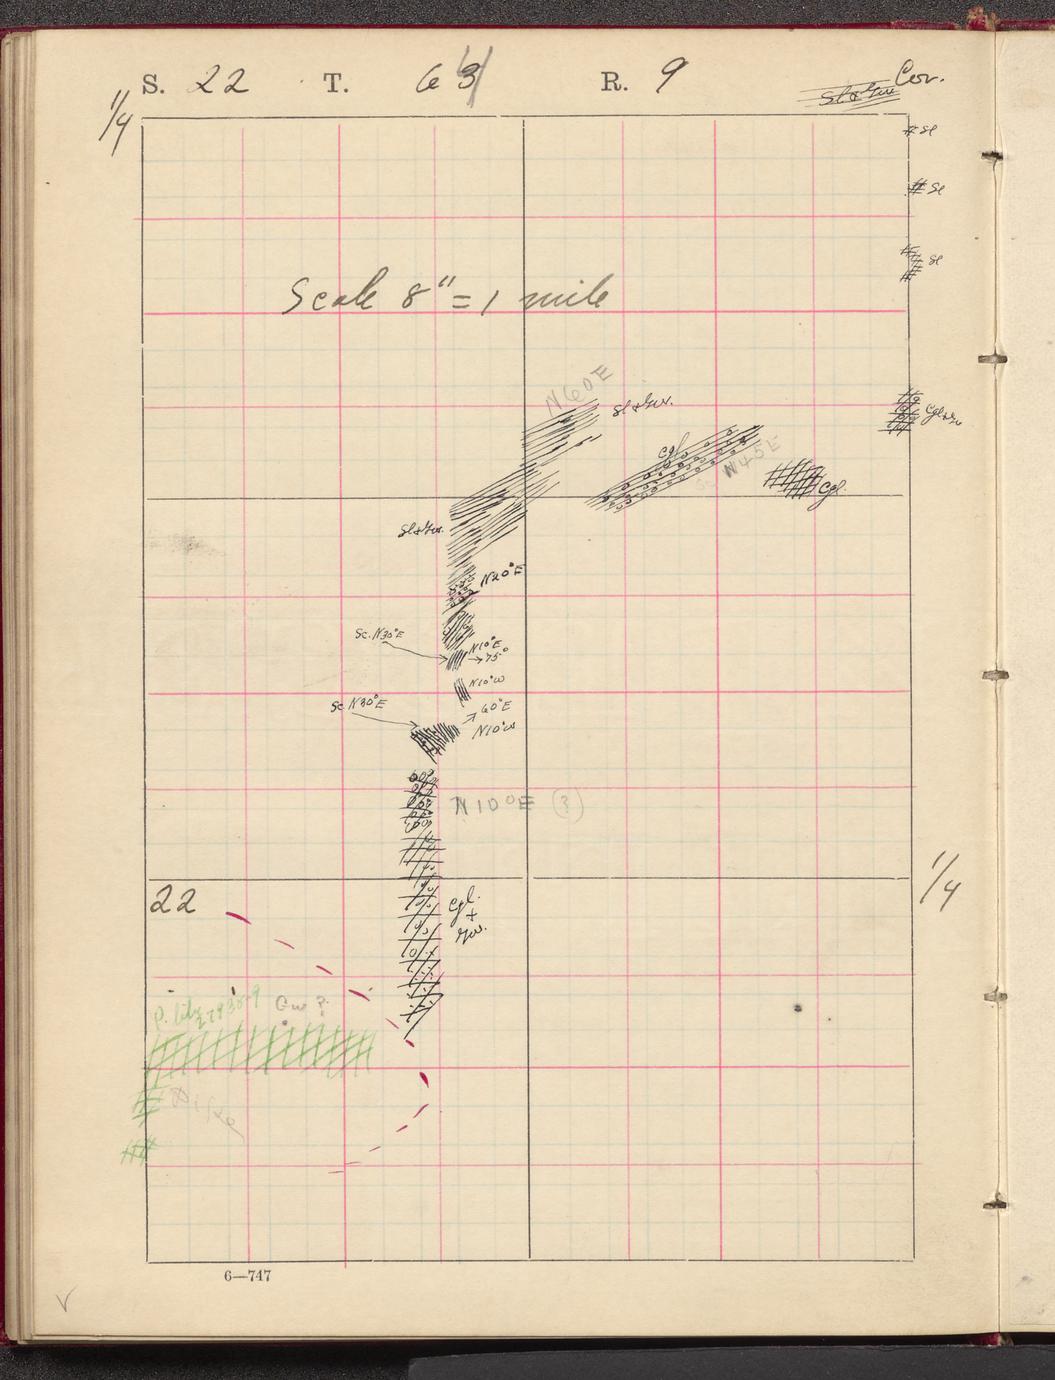 S. 22 T. 63 R. 9
Cor.
Sl & Gw
1/4
# Sl
# Sl
Sl
Scale 8" = 1 mile
N60E
Sl & Gw.
Cgl
N45E
Cgl.
Cgl & Gw
Sl & Gw.
N20°E
Sc. N30°E
N10°E
→75°
N10°W
Sc. N30°E
60°E
N10°W
N10°E (?)
1/4
22
Cgl.
+
Gw.
Gw ?
6—747